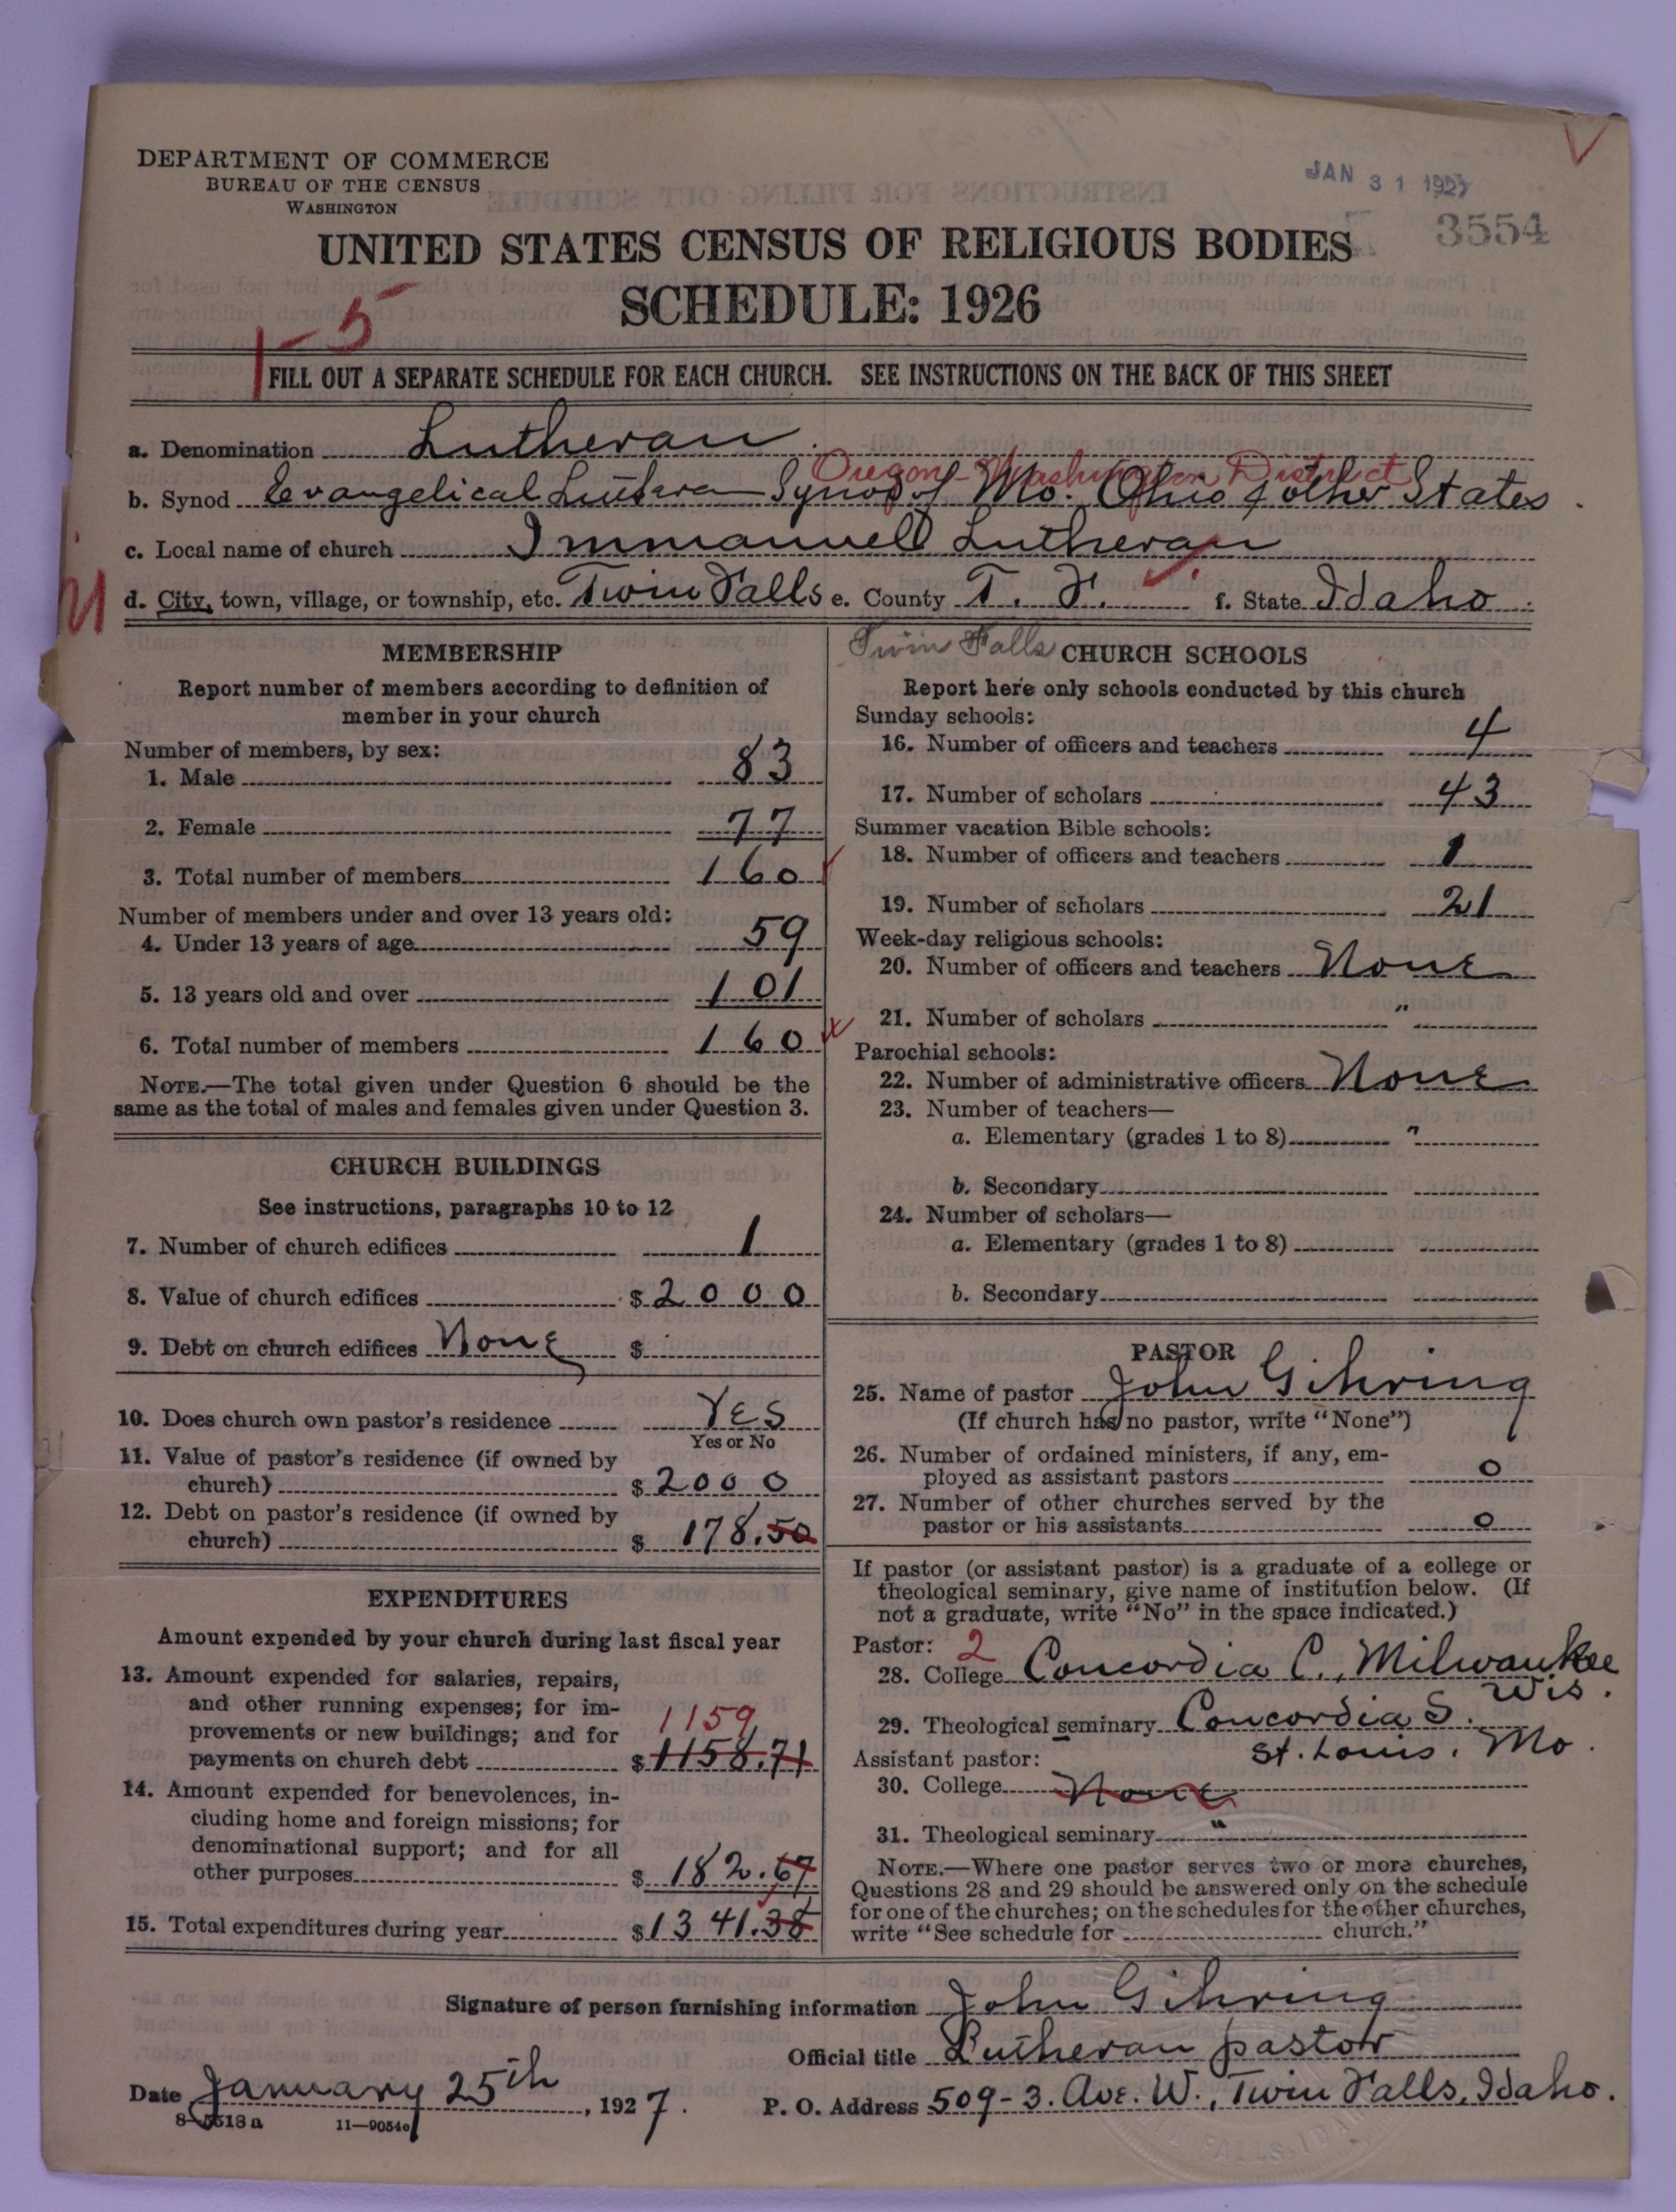 DEPARTMENT OF COMMERCE
BUREAU OF THE CENSUS
WASHINGTON
JAN 31 1927
3554
UNITED STATES CENSUS OF RELIGIOUS BODIES
SCHEDULE: 1926
1-5
FILL OUT A SEPARATE SCHEDULE FOR EACH CHURCH. SEE INSTRUCTIONS ON THE BACK OF THIS SHEET
a. Denomination Lutheran
Oregon-Washington District
b. Synod Evangelical Luthera Synod of Mo. Ohio & other States
c. Local name of church Immanuell Lutheran
d. City, town, village, or township, etc. Twin Falls e. County T. F. f. State Idaho
Twin Falls
MEMBERSHIP
Report number of members according to definition of
member in your church
Number of members, by sex:
1. Male 83
2. Female 77
3. Total number of members 160
Number of members under and over 13 years old:
4. Under 13 years of age 59
5. 13 years old and over 101
6. Total number of members 160
NOTE.—The total given under Question 6 should be the
same as the total of males and females given under Question 3.
CHURCH BUILDINGS
See instructions, paragraphs 10 to 12
7. Number of church edifices 1
8. Value of church edifices $2000
9. Debt on church edifices None $
10. Does church own pastor's residence YES
Yes or No
11. Value of pastor's residence (if owned by
church) $2000
12. Debt on pastor's residence (if owned by
church) $ 178.50
EXPENDITURES
Amount expended by your church during last fiscal year
13. Amount expended for salaries, repairs,
and other running expenses; for im-
provements or new buildings; and for
1159
payments on church debt $1158.71
14. Amount expended for benevolences, in-
cluding home and foreign missions; for
denominational support; and for all
other purposes $ 182.67
15. Total expenditures during year $1341.38
CHURCH SCHOOLS
Report here only schools conducted by this church
Sunday schools:
16. Number of officers and teachers 4
17. Number of scholars 43
Summer vacation Bible schools:
18. Number of officers and teachers 1
19. Number of scholars 21
Week-day religious schools:
20. Number of officers and teachers None
21. Number of scholars "
Parochial schools:
22. Number of administrative officers None
23. Number of teachers—
a. Elementary (grades 1 to 8) "
b. Secondary
24. Number of scholars—
a. Elementary (grades 1 to 8)
b. Secondary
PASTOR
25. Name of pastor John Gihring
(If church has no pastor, write "None")
26. Number of ordained ministers, if any, em-
ployed as assistant pastors 0
27. Number of other churches served by the
pastor or his assistants 0
If pastor (or assistant pastor) is a graduate of a college or
theological seminary, give name of institution below. (If
not a graduate, write "No" in the space indicated.)
Pastor: 2
28. College Concordia C., Milwaukee
Wis.
29. Theological seminary Concordia S.
St. Louis. Mo.
Assistant pastor:
30. College None
31. Theological seminary "
NOTE.—Where one pastor serves two or more churches,
Questions 28 and 29 should be answered only on the schedule
for one of the churches; on the schedules for the other churches,
write "See schedule for church."
Signature of person furnishing information John Gihring
Official title Lutheran pastor
Date January 25th, 1927.
P. O. Address 509-3. Ave. W., Twin Falls, Idaho.
8-5518a 11-9054